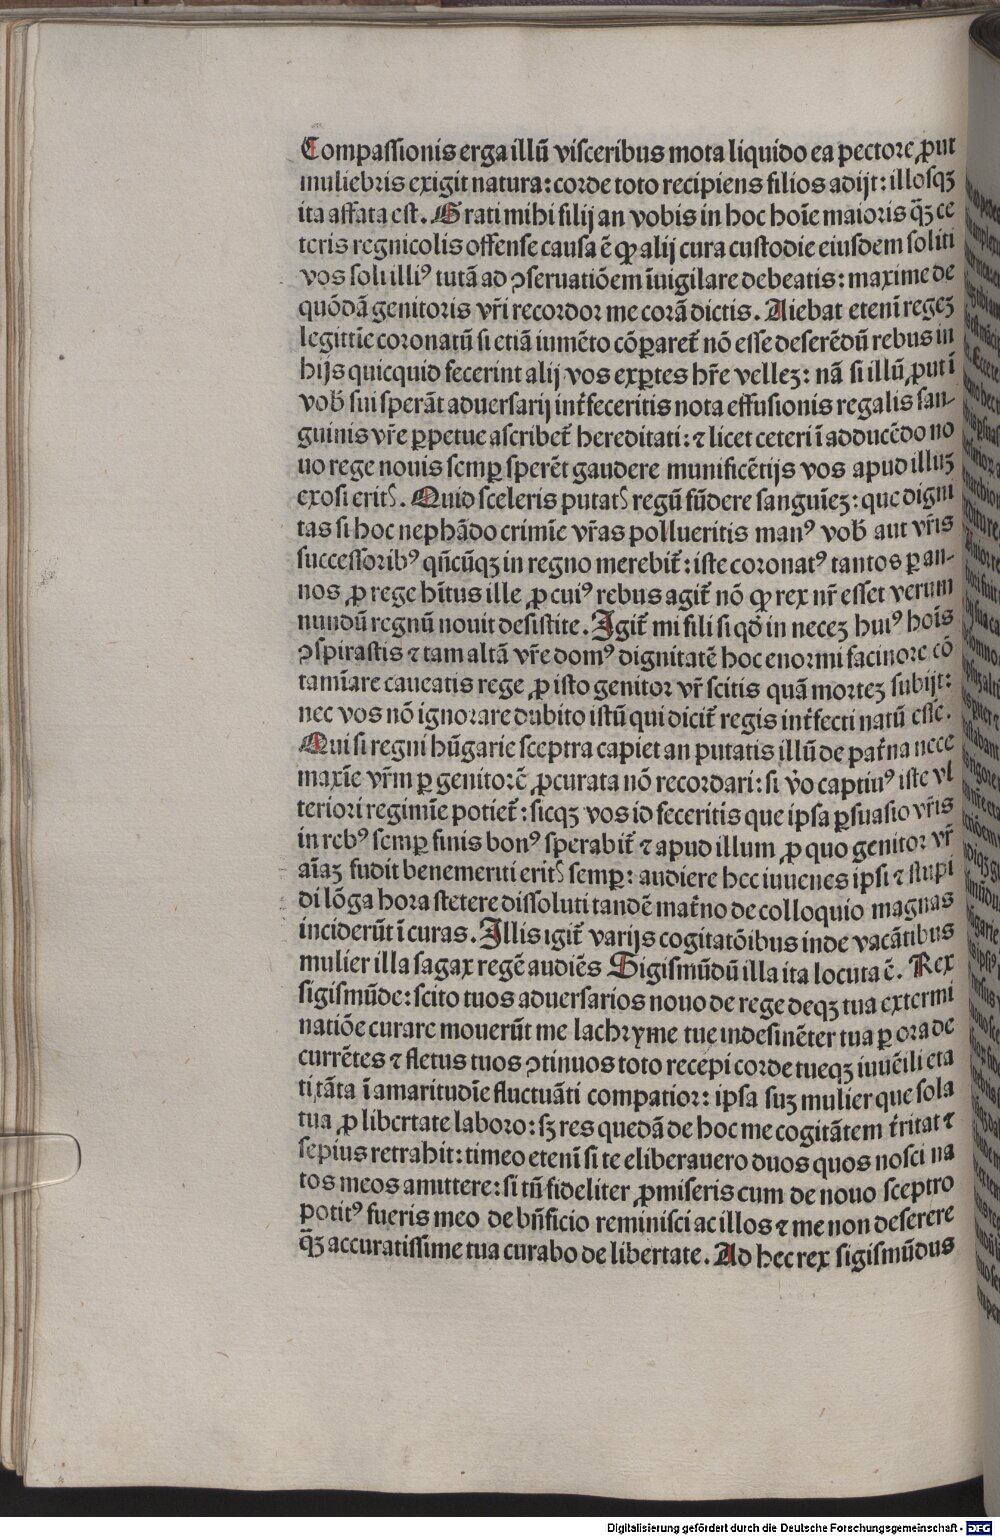 Compassionis erga illū visceribus mota liquido ea pectore ꝓut
muliebris exigit natura: corde toto recipiens filios adijt: illosqꝫ
ita affata est. Grati mihi filij an vobis in hoc hoīe maioris q̄ꝫ ce
teris regnicolis offense causa ē ꝙ alij cura custodie eiusdem soliti
vos soli illiꝰ tutā ad ꝯseruatiōem īuigilare debeatis: maxime de
quōdā genitoris vr̄i recordor me corā dictis. Aiebat etenī regeꝫ
legittīe coronatū si etiā iumēto cōꝑaret᷑ nō esse deserēdū rebus in
hijs quicquid fecerint alij vos exꝑtes hr̄e velleꝫ: nā si illū ꝓut ī
vob᷒ sui sperāt aduersarij int᷑feceritis nota effusionis regalis san-
guinis vr̄e ꝑpetue ascribet᷑ hereditati: ⁊ licet ceteri ī adducēdo no
uo rege nouis semꝑ sperēt gaudere munificētijs vos apud illuꝫ
exosi erit᷒. Quid sceleris putat᷒ regū fūdere sanguīeꝫ: que digni
tas si hoc nephādo crimīe vr̄as pollueritis manꝰ vob᷒ aut vr̄is
successoribꝰ qn̄cūqꝫ in regno merebit᷑: iste coronatꝰ tantos ꝑ an-
nos ꝓ rege hītus ille ꝓ cuiꝰ rebus agit᷑ nō ꝙ rex nr̄ esset verum
nundū regnū nouit desistite. Igit᷑ mi fili si qd̄ in neceꝫ huiꝰ hoīs
ꝯspirastis ⁊ tam altā vr̄e domꝰ dignitatē hoc enormi facinore cō
tamīare caueatis rege ꝓ isto genitor vr̄ scitis quā morteꝫ subijt:
nec vos nō ignorare dubito istū qui dicit᷑ regis int᷑fecti natū esse.
Qui si regni hūgarie sceptra capiet an putatis illū de pat᷑na nece
maxīe vr̄m ꝑ genitorē ꝓcurata nō recordari: si v̊o captiuꝰ iste vl
teriori regimīe potiet᷑: sicqꝫ vos id feceritis que ipsa ꝑsuasio vr̄is
in rebꝰ semꝑ finis bonꝰ sperabit᷑ ⁊ apud illum ꝓ quo genitor vr̄
aīaꝫ fudit benemeriti erit᷒ semꝑ: audiere hec iuuenes ipsi ⁊ stupi
di lōga hora stetere dissoluti tandē mat᷑no de colloquio magnas
inciderūt ī curas. Illis igit᷑ varijs cogitatōibus inde vacātibus
mulier illa sagax regē audiēs Sigismūdū illa ita locuta ē. Rex
sigismūde: scito tuos aduersarios nouo de rege deqꝫ tua extermi
natiōe curare mouerūt me lachryme tue indesinēter tua ꝑ ora de
currētes ⁊ fletus tuos ꝯtinuos toto recepi corde tueqꝫ iuuēili eta
ti tāta ī amaritudīe fluctuāti compatior: ipsa suꝫ mulier que sola
tua ꝓ libertate laboro: sꝫ res quedā de hoc me cogitātem t᷑ritat ⁊
sepius retrahit: timeo etenī si te eliberauero duos quos nosci na
tos meos amittere: si tn̄ fideliter ꝓmiseris cum de nouo sceptro
potitꝰ fueris meo de bn̄ficio reminisci ac illos ⁊ me non deserere
q̄ꝫ accuratissime tua curabo de libertate. Ad hec rex sigismūdus
Digitalisierung gefördert durch die Deutsche Forschungsgemeinschaft - DFG